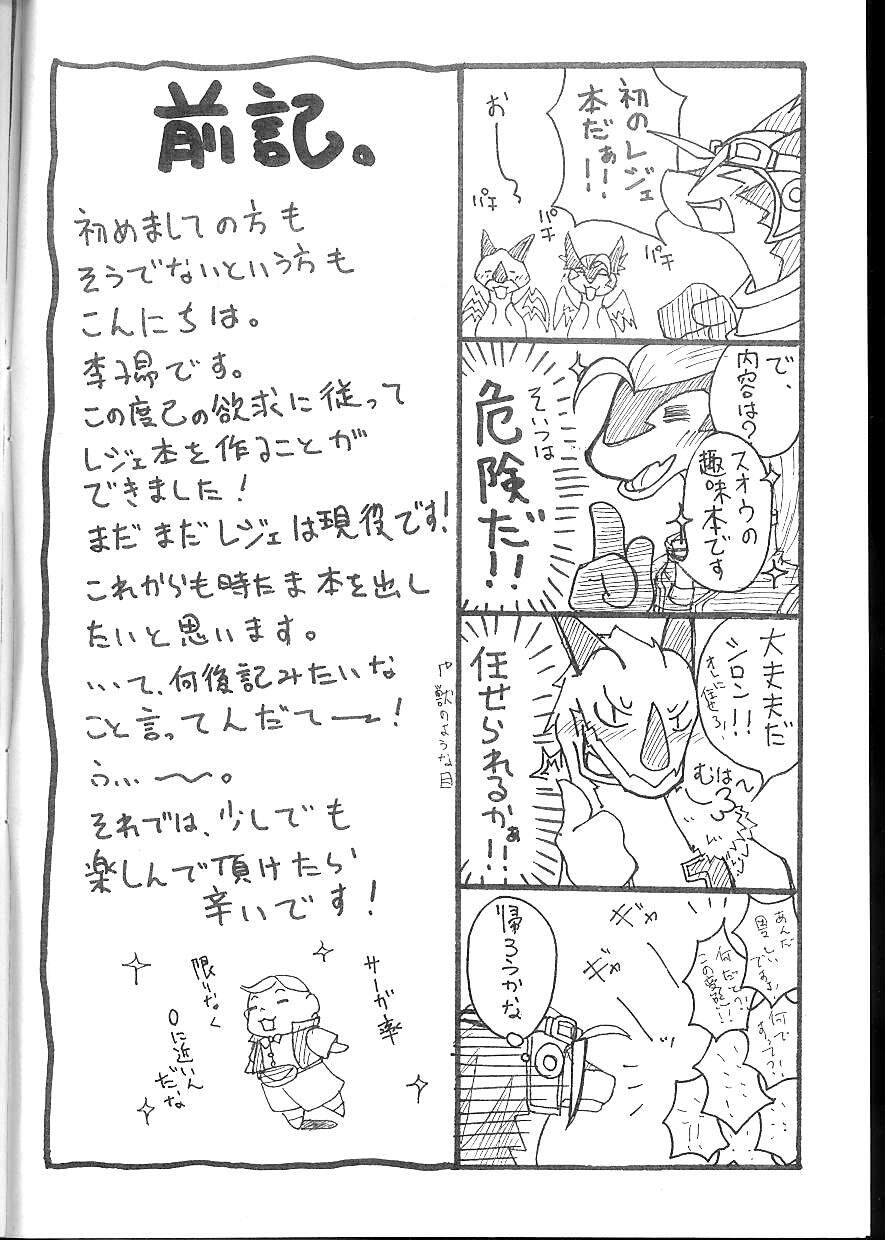 初のレジェ
本だぁ!!
お～
パチ
パチ
パチ
で、
内容は?
スオウの
趣味本です
そいつは
危険だ!!
大丈夫だ
シロン!!
オレに任せろ!
むは～
任せられるかぁ!!
や獣のような目
何だて?!
何で
すって?!
ギャ
ギャ
帰ろうかな
前記。
初めましての方も
そうでないという方も
こんにちは。
この度己の欲求に従って
レジェ本を作ることが
できました!
まだまだレジェは現役です!
これからも時たま本を出し
たいと思います。
・・・て、何後記みたいな
こと言ってんだてー!
ふぃ～。
それでは、少しでも
楽しんで頂けたら
辛いです!
サーガ率
限りなく
0に近いん
だな